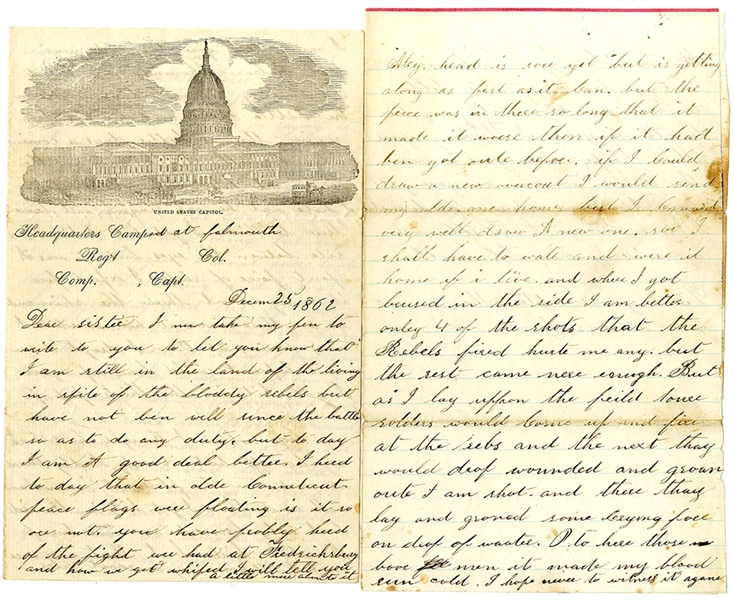 UNITED STATES CAPITOL.
Headquarters Camped at falmouth
Reg't Col.
Comp. , Capt.
Decem 25 1862
Dear sister I now take my pen to
write to you to let you know that
I am still in the land of the living
in spite of the bloddy rebels but
have not ben well since the battle
so as to do any duty. but to day
I am A good deal better. I heed
to day that in olde Conneticut
peace flags were floating is it so
ore not. you have probly heed
of the fight wee had at Fredricksburg
and how we got whiped I will tell you
a little more about it
My head is sore yet but is getting
along as fast as it can. but the
peice was in there so long that it
made it worse then if it had
ben got oute before. if I Could
draw a new overcoat I would send
my olde one home but I Cannot
very well draw A new one. soo I
shall have to wate and were it
home if i live. and where I got
brused in the side I am better
onley 4 of the shots that the
Rebels fired hurte me any. but
the rest came nere enugh. But
as I lay uppon the feild some
solders would Come up and fire
at the rebs and the next thay
would drop wounded and groan
oute I am shot. and there thay
lay and groned some Crying fore
on drop of waater. O to here those
boor men it made my blood
run cold. I hope never to witness it agane